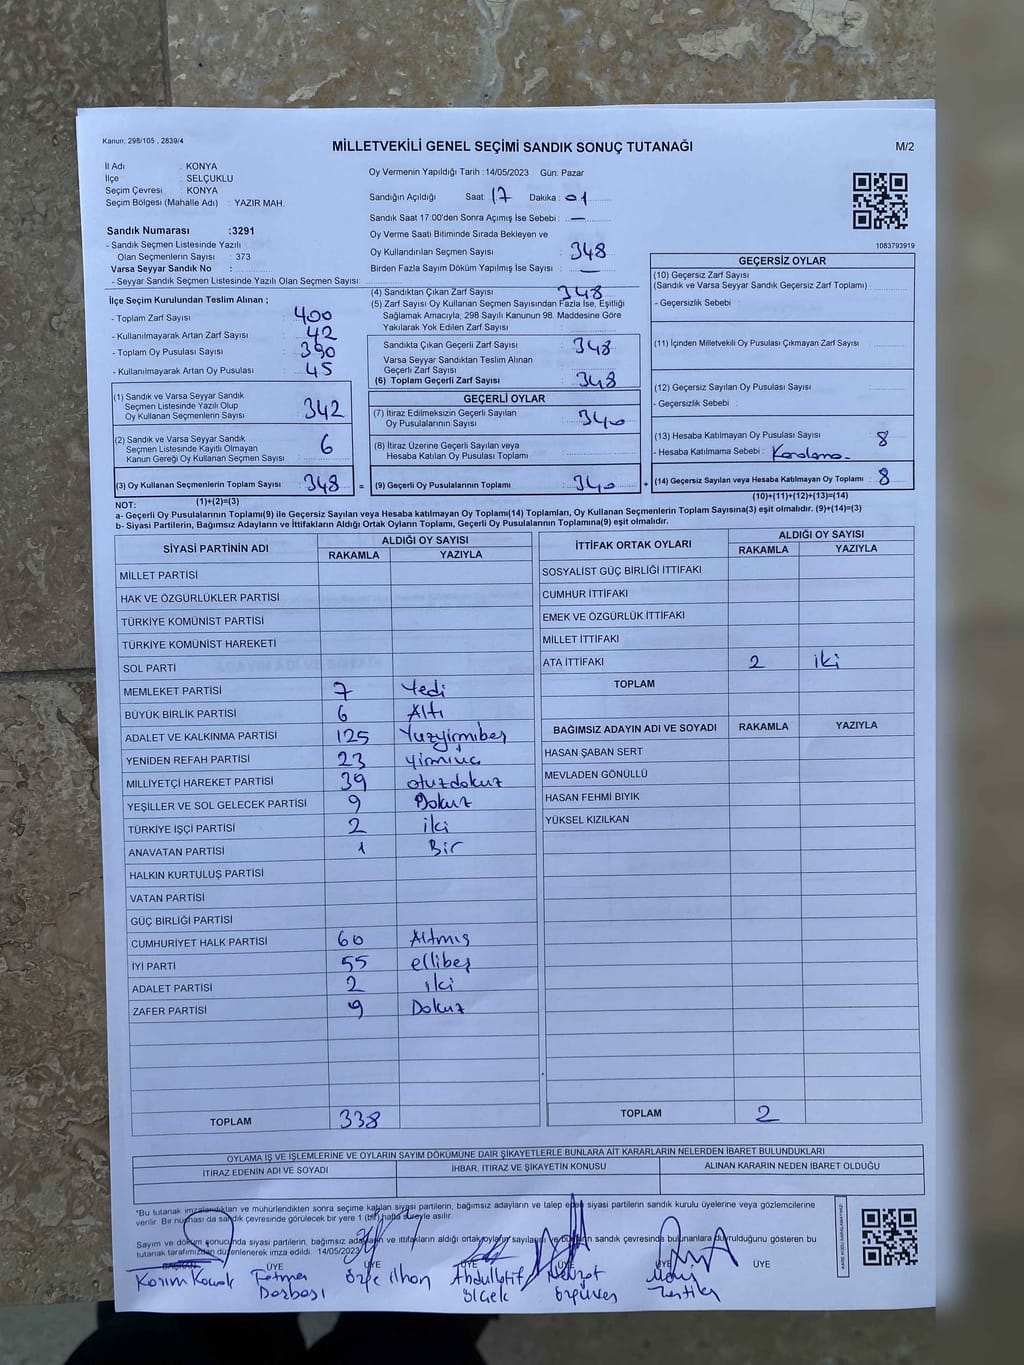 Kanun: 298/105 , 2839/4
MİLLETVEKİLİ GENEL SEÇİMİ SANDIK SONUÇ TUTANAĞI
M/2
İl Adı : KONYA
İlçe : SELÇUKLU
Seçim Çevresi : KONYA
Seçim Bölgesi (Mahalle Adı) : YAZIR MAH.
Sandık Numarası :3291
- Sandık Seçmen Listesinde Yazılı
Olan Seçmenlerin Sayısı : 373
Varsa Seyyar Sandık No :
- Seyyar Sandık Seçmen Listesinde Yazılı Olan Seçmen Sayısı:
Oy Vermenin Yapıldığı Tarih :14/05/2023 Gün: Pazar
Sandığın Açıldığı Saat: 17 Dakika : 01
Sandık Saat 17:00'den Sonra Açımış İse Sebebi : —
Oy Verme Saati Bitiminde Sırada Bekleyen ve
Oy Kullandırılan Seçmen Sayısı : 348
Birden Fazla Sayım Döküm Yapılmış İse Sayısı : —
1083793919
İlçe Seçim Kurulundan Teslim Alınan ;
- Toplam Zarf Sayısı : 400
- Kullanılmayarak Artan Zarf Sayısı : 42
- Toplam Oy Pusulası Sayısı : 390
- Kullanılmayarak Artan Oy Pusulası : 45
(1) Sandık ve Varsa Seyyar Sandık
Seçmen Listesinde Yazılı Olup
Oy Kullanan Seçmenlerin Sayısı : 342
(2) Sandık ve Varsa Seyyar Sandık
Seçmen Listesinde Kayıtlı Olmayan
Kanun Gereği Oy Kullanan Seçmen Sayısı : 6
(3) Oy Kullanan Seçmenlerin Toplam Sayısı : 348
(1)+(2)=(3)
(4) Sandıktan Çıkan Zarf Sayısı : 348
(5) Zarf Sayısı Oy Kullanan Seçmen Sayısından Fazla İse, Eşitliği
Sağlamak Amacıyla; 298 Sayılı Kanunun 98. Maddesine Göre
Yakılarak Yok Edilen Zarf Sayısı :
Sandıkta Çıkan Geçerli Zarf Sayısı : 348
Varsa Seyyar Sandıktan Teslim Alınan
Geçerli Zarf Sayısı :
(6) Toplam Geçerli Zarf Sayısı : 348
GEÇERLİ OYLAR
(7) İtiraz Edilmeksizin Geçerli Sayılan
Oy Pusulalarının Sayısı : 340
(8) İtiraz Üzerine Geçerli Sayılan veya
Hesaba Katılan Oy Pusulası Toplamı :
= (9) Geçerli Oy Pusulalarının Toplamı : 340 +
GEÇERSİZ OYLAR
(10) Geçersiz Zarf Sayısı
(Sandık ve Varsa Seyyar Sandık Geçersiz Zarf Toplamı) :
- Geçersizlik Sebebi :
(11) İçinden Milletvekili Oy Pusulası Çıkmayan Zarf Sayısı :
(12) Geçersiz Sayılan Oy Pusulası Sayısı :
- Geçersizlik Sebebi :
(13) Hesaba Katılmayan Oy Pusulası Sayısı : 8
- Hesaba Katılmama Sebebi :
(14) Geçersiz Sayılan veya Hesaba Katılmayan Oy Toplamı : 8
(10)+(11)+(12)+(13)=(14)
NOT:
a- Geçerli Oy Pusulalarının Toplamı(9) ile Geçersiz Sayılan veya Hesaba katılmayan Oy Toplamı(14) Toplamları, Oy Kullanan Seçmenlerin Toplam Sayısına(3) eşit olmalıdır. (9)+(14)=(3)
b- Siyasi Partilerin, Bağımsız Adayların ve İttifakların Aldığı Ortak Oyların Toplamı, Geçerli Oy Pusulalarının Toplamına(9) eşit olmalıdır.
SİYASİ PARTİNİN ADI
ALDIĞI OY SAYISI
RAKAMLA YAZIYLA
MİLLET PARTİSİ
HAK VE ÖZGÜRLÜKLER PARTİSİ
TÜRKİYE KOMÜNİST PARTİSİ
TÜRKİYE KOMÜNİST HAREKETİ
SOL PARTİ
MEMLEKET PARTİSİ 7 Yedi
BÜYÜK BİRLİK PARTİSİ 6 Altı
ADALET VE KALKINMA PARTİSİ 125 Yüzyirmibeş
YENİDEN REFAH PARTİSİ 23 yirmiüç
MİLLİYETÇİ HAREKET PARTİSİ 39 otuzdokuz
YEŞİLLER VE SOL GELECEK PARTİSİ 9 Dokuz
TÜRKİYE İŞÇİ PARTİSİ 2 iki
ANAVATAN PARTİSİ 1 Bir
HALKIN KURTULUŞ PARTİSİ
VATAN PARTİSİ
GÜÇ BİRLİĞİ PARTİSİ
CUMHURİYET HALK PARTİSİ 60 Altmış
İYİ PARTİ 55 ellibeş
ADALET PARTİSİ 2 iki
ZAFER PARTİSİ 9 Dokuz
TOPLAM 338
İTTİFAK ORTAK OYLARI
ALDIĞI OY SAYISI
RAKAMLA YAZIYLA
SOSYALİST GÜÇ BİRLİĞİ İTTİFAKI
CUMHUR İTTİFAKI
EMEK VE ÖZGÜRLÜK İTTİFAKI
MİLLET İTTİFAKI
ATA İTTİFAKI 2 iki
TOPLAM
BAĞIMSIZ ADAYIN ADI VE SOYADI RAKAMLA YAZIYLA
HASAN ŞABAN SERT
MEVLADEN GÖNÜLLÜ
HASAN FEHMİ BIYIK
YÜKSEL KIZILKAN
TOPLAM 2
OYLAMA İŞ VE İŞLEMLERİNE VE OYLARIN SAYIM DÖKÜMÜNE DAİR ŞİKAYETLERLE BUNLARA AİT KARARLARIN NELERDEN İBARET BULUNDUKLARI
İTİRAZ EDENİN ADI VE SOYADI İHBAR, İTİRAZ VE ŞİKAYETİN KONUSU ALINAN KARARIN NEDEN İBARET OLDUĞU
*Bu tutanak imzalandıktan ve mühürlendikten sonra seçime katılan siyasi partilerin, bağımsız adayların ve talep eden siyasi partilerin sandık kurulu üyelerine veya gözlemcilerine
verilir. Bir nüshası da sandık çevresinde görülecek bir yere 1 (bir) hafta süreyle asılır.
Sayım ve döküm sonucunda siyasi partilerin, bağımsız adayların ve ittifakların aldığı ortak oyların sayıları ve bu sandık çevresinde bulunanlara duyrulduğunu gösteren bu
tutanak tarafımızdan düzenlenerek imza edildi. 14/05/2023
BAŞKAN ÜYE ÜYE ÜYE ÜYE ÜYE ÜYE
Fatma Özge ilhan Abdullatif Nevzat